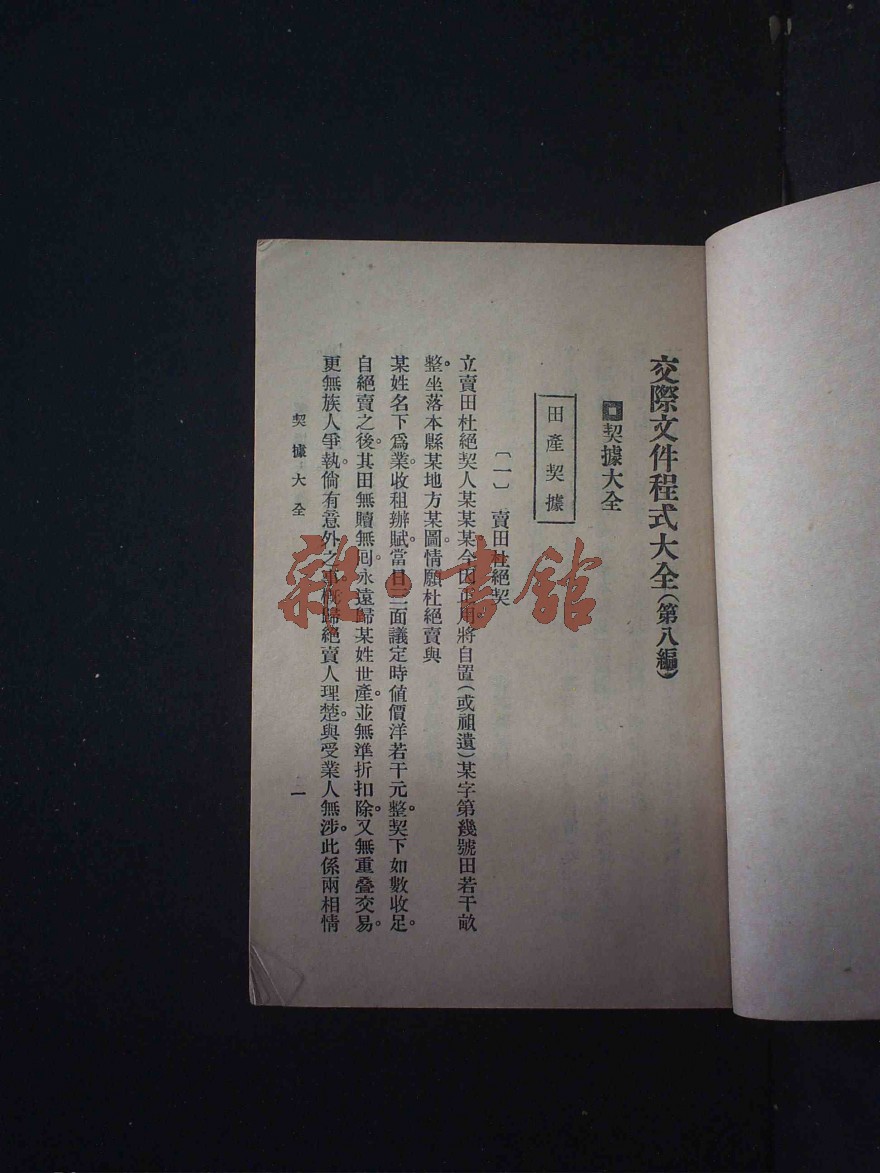 交際文件程式大全(第八編)
契據大全
田產契據
〔一〕 賣田杜絕契
立賣田杜絕契人某某某今因正用將自置(或祖遺)某字第幾號田若干畝
整。坐落本縣某地方某圖情願杜絕賣與
某姓名下爲業。收租辦賦。當日三面議定時値價洋若干元。整契下如數收足。
自絕賣之後。其田無贖無回。永遠歸某姓世產。並無準折扣除。又無重叠交易。
更無族人爭執。倘有意外之事。槪歸絕賣人理楚。與受業人無涉。此係兩相情
契據大全
一
雜·書館